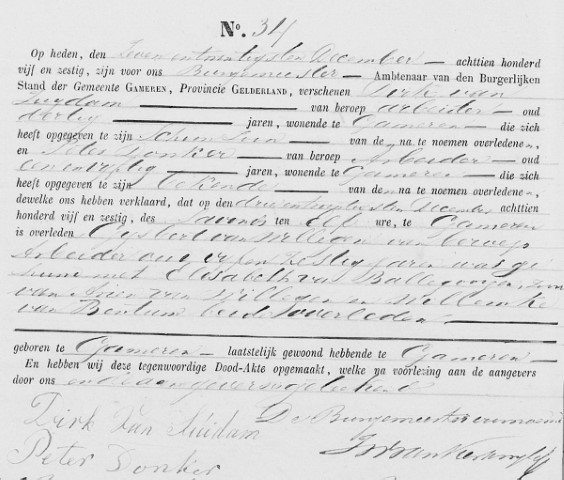 No. 34
Op heden, den Zeven entwintigsten December achttien honderd
vijf en zestig, zijn voor ons Burgemeester Ambtenaar van den Burgerlijken
Stand der Gemeente GAMEREN, Provincie GELDERLAND, verschenen Dirk van
Suydam van beroep arbeider oud
dertig jaren, wonende te Gameren die zich
heeft opgegeven te zijn Schoonzoon van de na te noemen overledene,
en Peter Donker van beroep Arbeider oud
een en vijftig jaren, wonende te Gameren die zich
heeft opgegeven te zijn bekende van den na te noemen overledene,
dewelke ons hebben verklaard, dat op den drie entwintigsten December achttien
honderd vijf en zestig, des savonds ten elf ure, te Gameren
is overleden Gysbert van Willigen van beroep
Arbeider oud en zestig jaren was ge
huwd met Elisabeth van Ballegooyen zoon
van van Willigen en Willemke
van Bentum beide overleden
geboren te Gameren laatstelijk gewoond hebbende te Gameren
En hebben wij deze tegenwoordige Dood-Akte opgemaakt, welke na voorlezing aan de aangevers
door ons en de aangevers is geteekend
Dirk van Suidam De Burgemeester voornoemd
Peter Donker